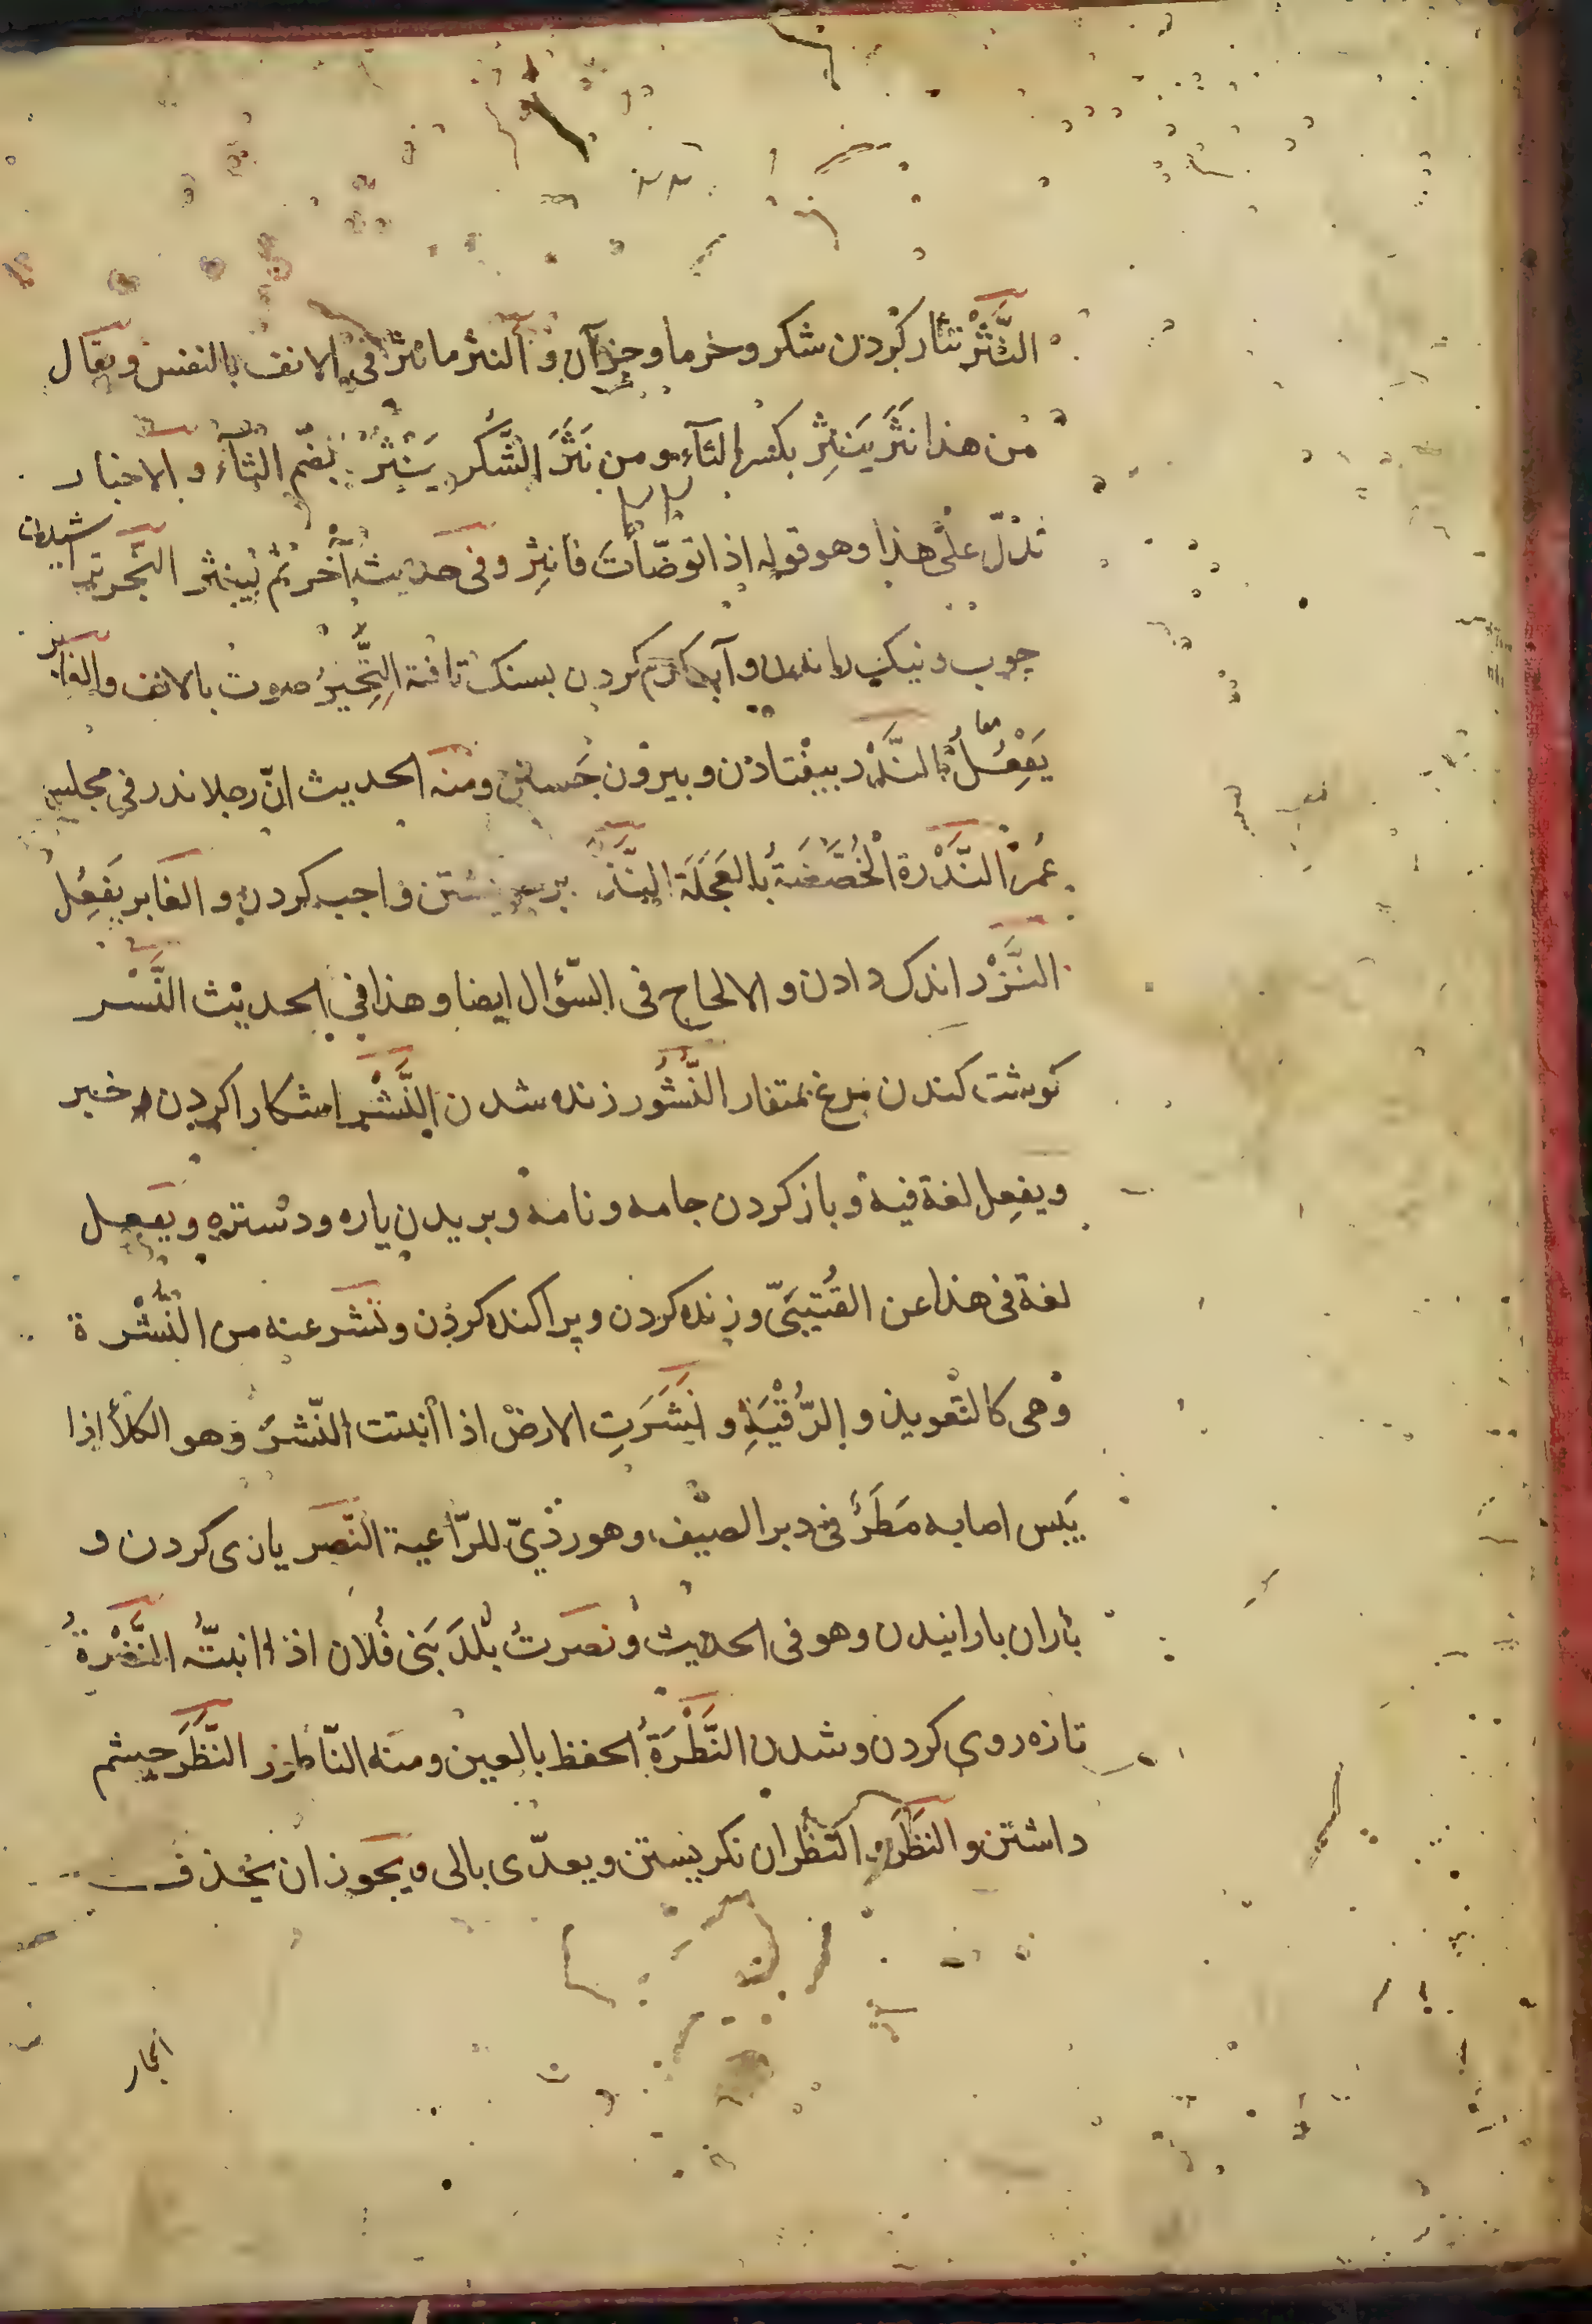 النَّثْر نثار كردن شكر وخرما وجز آن و النثر ما نثر فى الانف بالنفس ويقال
من هذا نَثَرَ يَنثِرُ بكسر الثآء ومن نَثَرَ السُّكَّر يَنثُرُ بضم الثآء و الاخبار
تدلّ على هذا وهو قوله اذا توضّأت فانثِر وفى حديث آخر ثم لينثر النَّجر
چوب و نيك راندن و آب كرم كردن بسنك تافته النَّخِيرُ صوت بالانف والغابر
يَفْعِلُ النَّدْر بيفتادن و بيرون جستن ومنه الحديث انّ رجلا ندر فى مجلس
عُمَرَ النَّدْرة الخَضْفَةُ بالعَجَلَة النَّذر واجب كردن و الغابر يَفعِلُ
النَّزْر اندك دادن و الالحاح فى السّؤال ايضا وهذا فى الحديث النَّسْر
كوشت كندن مرغ بمنقار النُّشُور زنده شدن النَّشْر اشكارا كردن خبر
ويفعِل لغة فيه و باز كردن جامه و نامه و بريدن ياره ودستره ويفعِل
لغة فى هذا عن القُتَيبَىّ و زنده كردن و پراكنده كردن ونشر عنه من النُّشْرة
وهى كالتعويذ و الرُّقْيَةِ و نَشَرَتِ الارضُ اذا انبتت النّشر وهو الكلأ اذا
يَبِس اصابه مَطَرٌ فى دبر الصيف وهو رَدِىّ للرّاعية النّصر يارى كردن و
باران بارانيدن وهو فى الحديث ونصرتُ بَلَدَ بَنى فُلان اذا اتيته النَّضْرةُ
تازه روى كردن و شدن النَّظْرَةُ الحفظ بالعين ومنه النّاظور النَّظَر چشم
داشتن و النظَر و النَظَران نكريستن ويعدّى بالى ويجوز ان يحذف